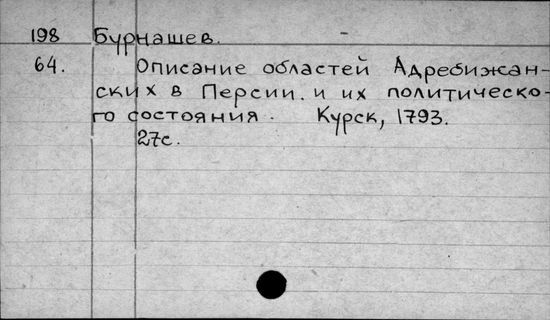 198 Бурнашев.
64. Описание областей Адребижан-
ских в Персии. и их политическо-
го состояния. Курск, 1793.
27с.